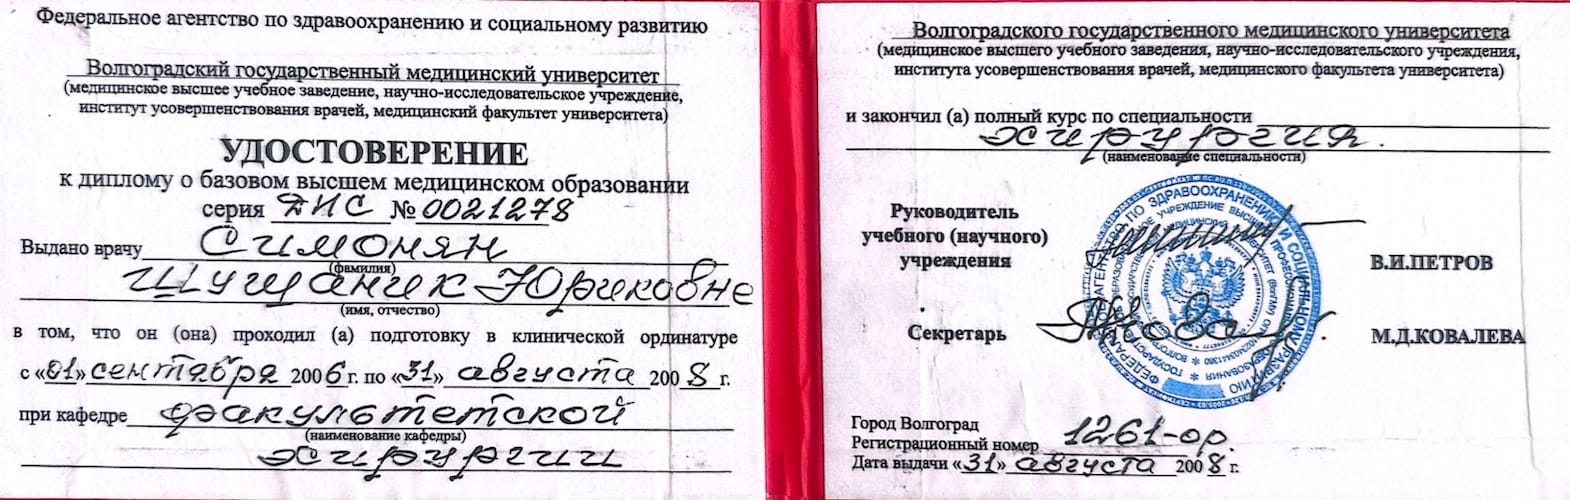 Федеральное агентство по здравоохранению и социальному развитию
Волгоградский государственный медицинский университет
(медицинское высшее учебное заведение, научно-исследовательское учреждение,
институт усовершенствования врачей, медицинский факультет университета)
УДОСТОВЕРЕНИЕ
к диплому о базовом высшем медицинском образовании
серия ДИС № 0021278
Выдано врачу Симонян
(фамилия)
Шушаник Юриковне
(имя, отчество)
в том, что он (она) проходил (а) подготовку в клинической ординатуре
с «01» сентября 2006 г. по «31» августа 2008 г.
при кафедре факультетской
(наименование кафедры)
хирургии
Волгоградского государственного медицинского университета
(медицинское высшего учебного заведения, научно-исследовательского учреждения,
института усовершенствования врачей, медицинского факультета университета)
и закончил (а) полный курс по специальности
хирургия.
(наименование специальности)
Руководитель
учебного (научного)
учреждения
В.И.ПЕТРОВ
Секретарь
М.Д.КОВАЛЕВА
Город Волгоград
Регистрационный номер 1261-ор
Дата выдачи «31» августа 2008 г.